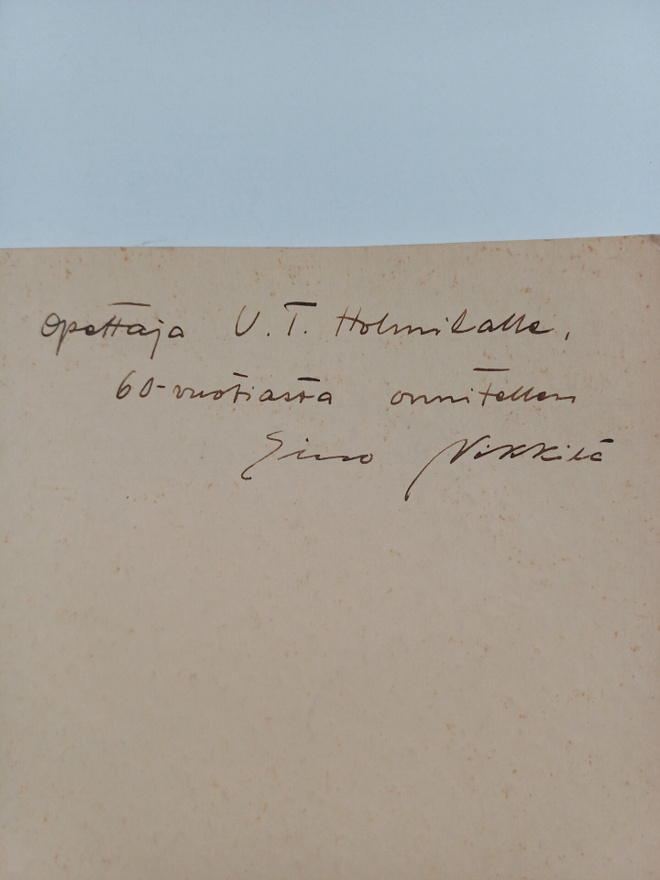 Opettaja V. T. Holmilalle,
60-vuotiasta onnitellen
Eino Nikkilä